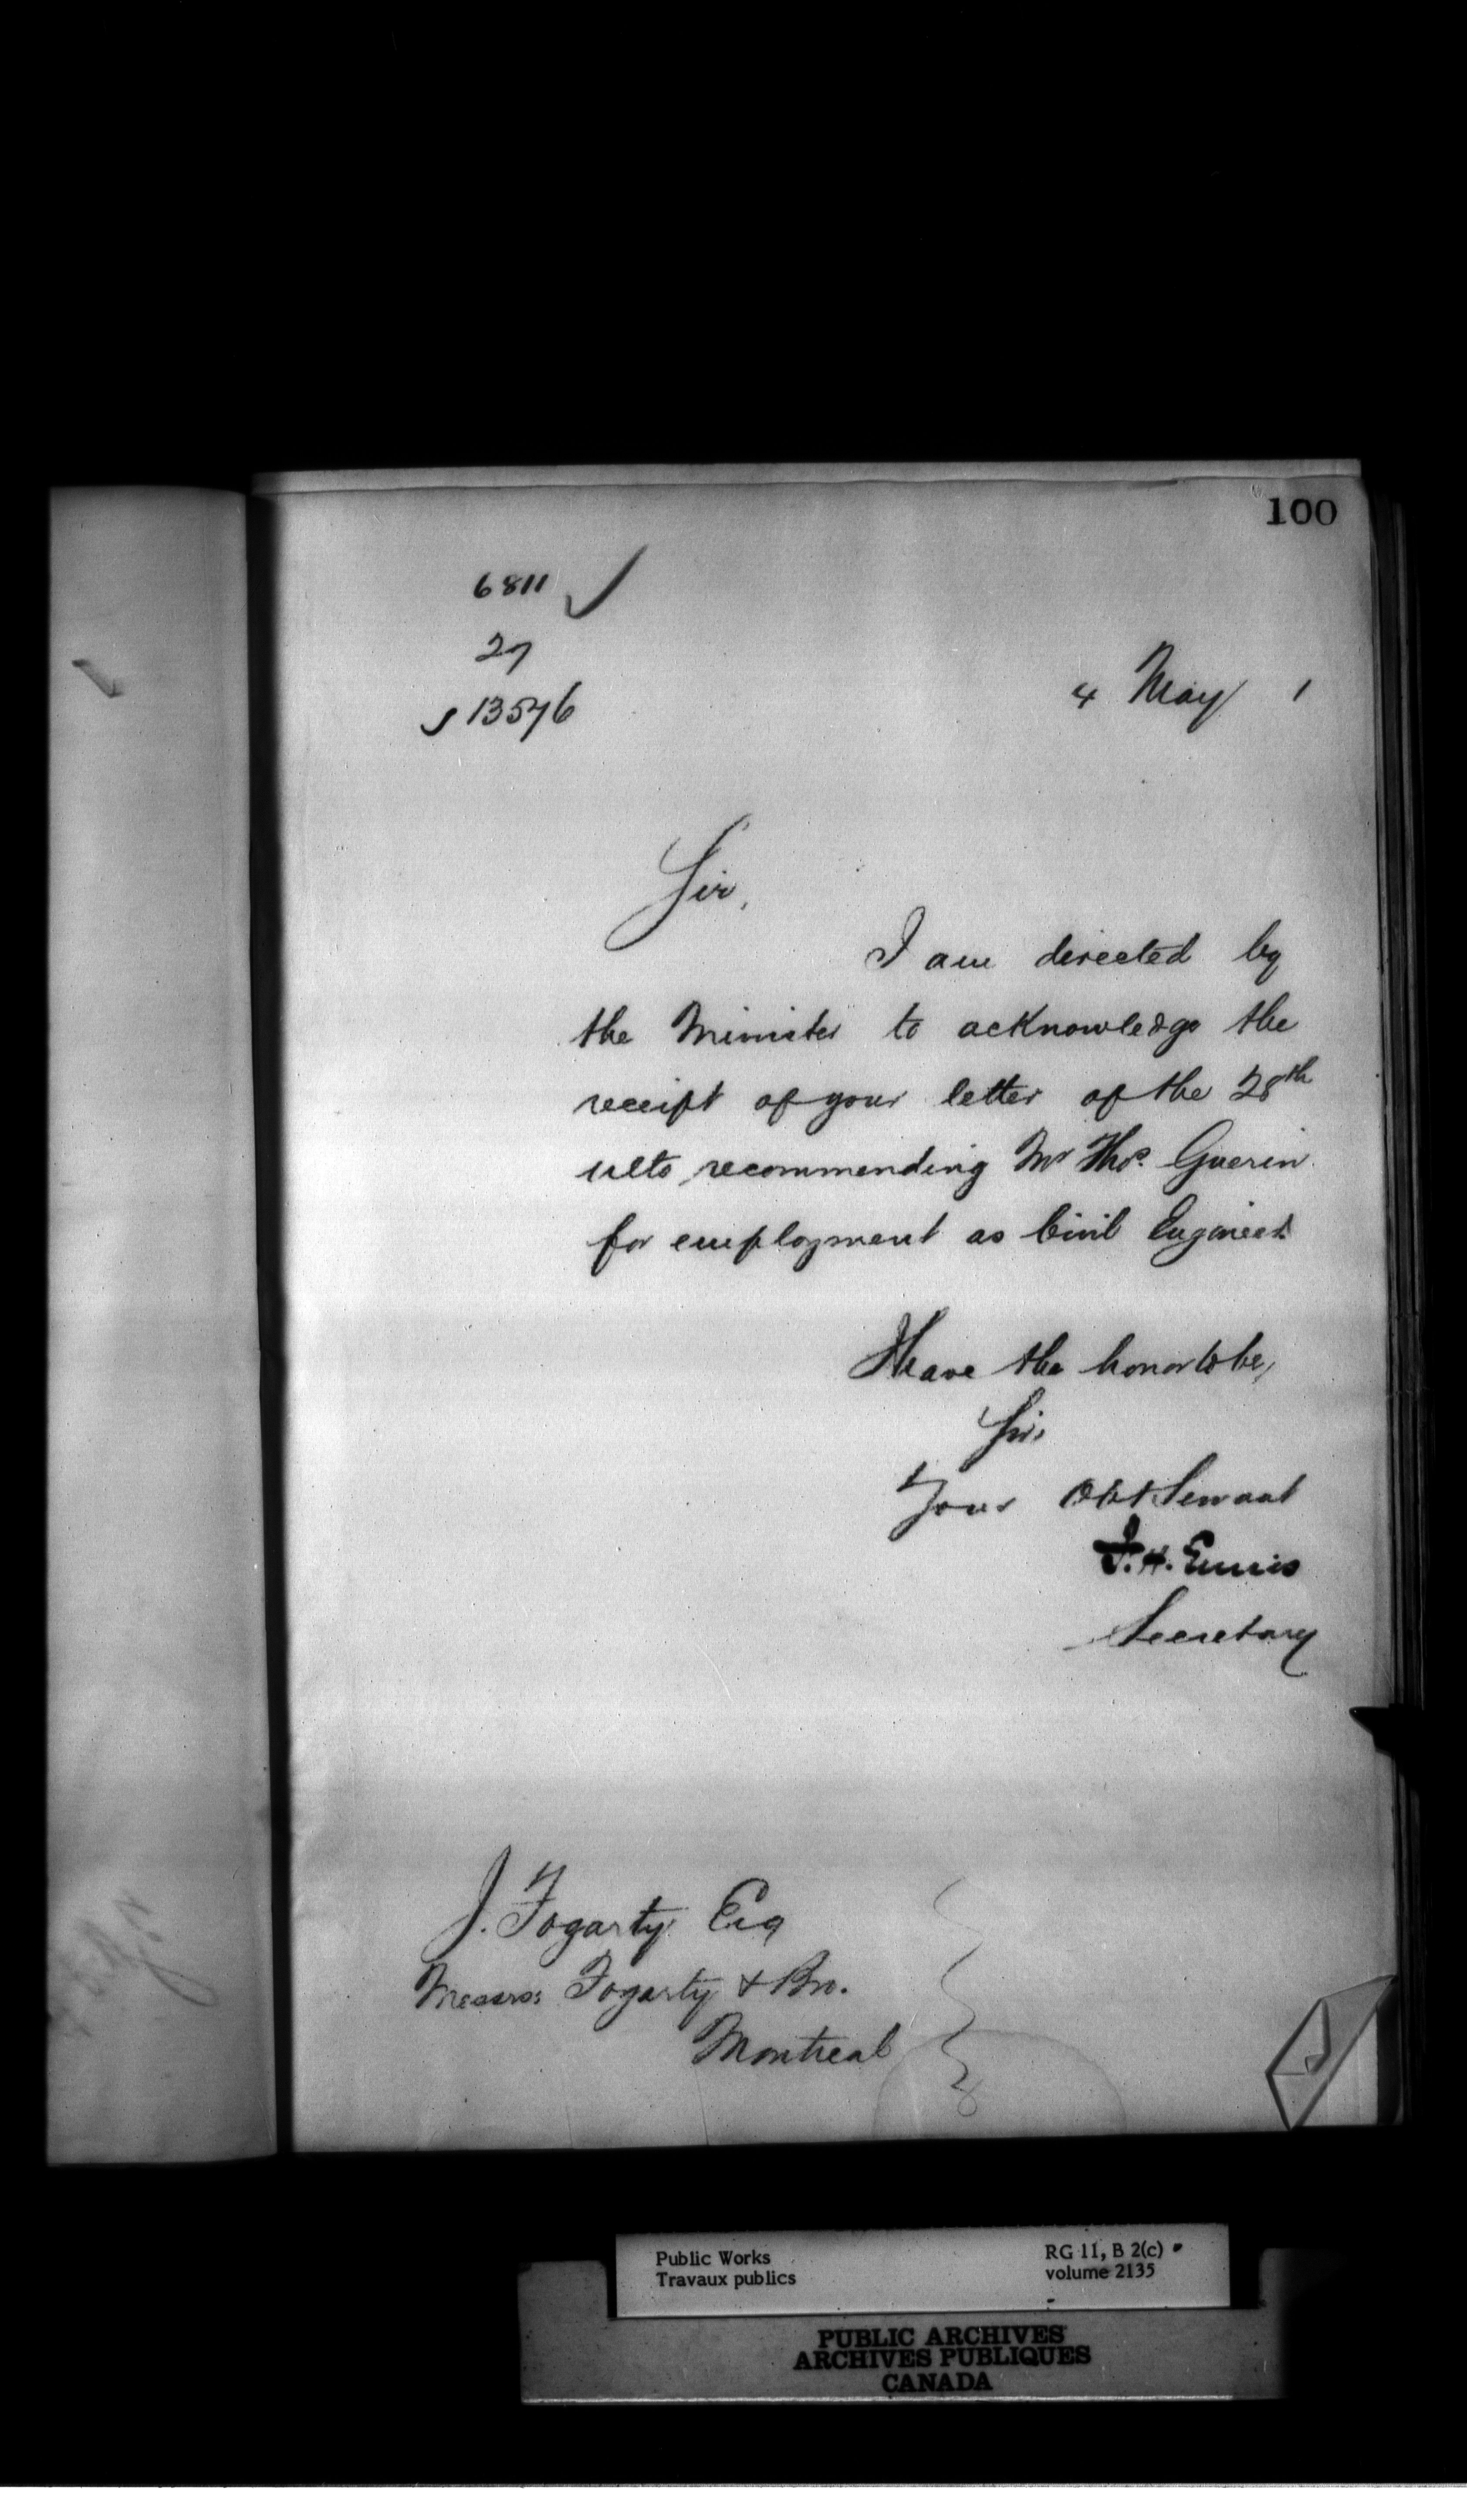 100
6811
27
13576
4 May 1
Sir,
I am directed by
the Minister to acknowledge the
receipt of your letter of the 28th
ulto, recommending Mr Thos. Guerin
for employment as Civil Engineer.
I have the honor to be,
Sir,
Your Obt Servant
F. H. Ennis
Secretary
J. Fogarty Esq
Messrs: Fogarty & Bro.
Montreal
Public Works
Travaux publics
RG 11, B 2(c)
volume 2135
PUBLIC ARCHIVES
ARCHIVES PUBLIQUES
CANADA